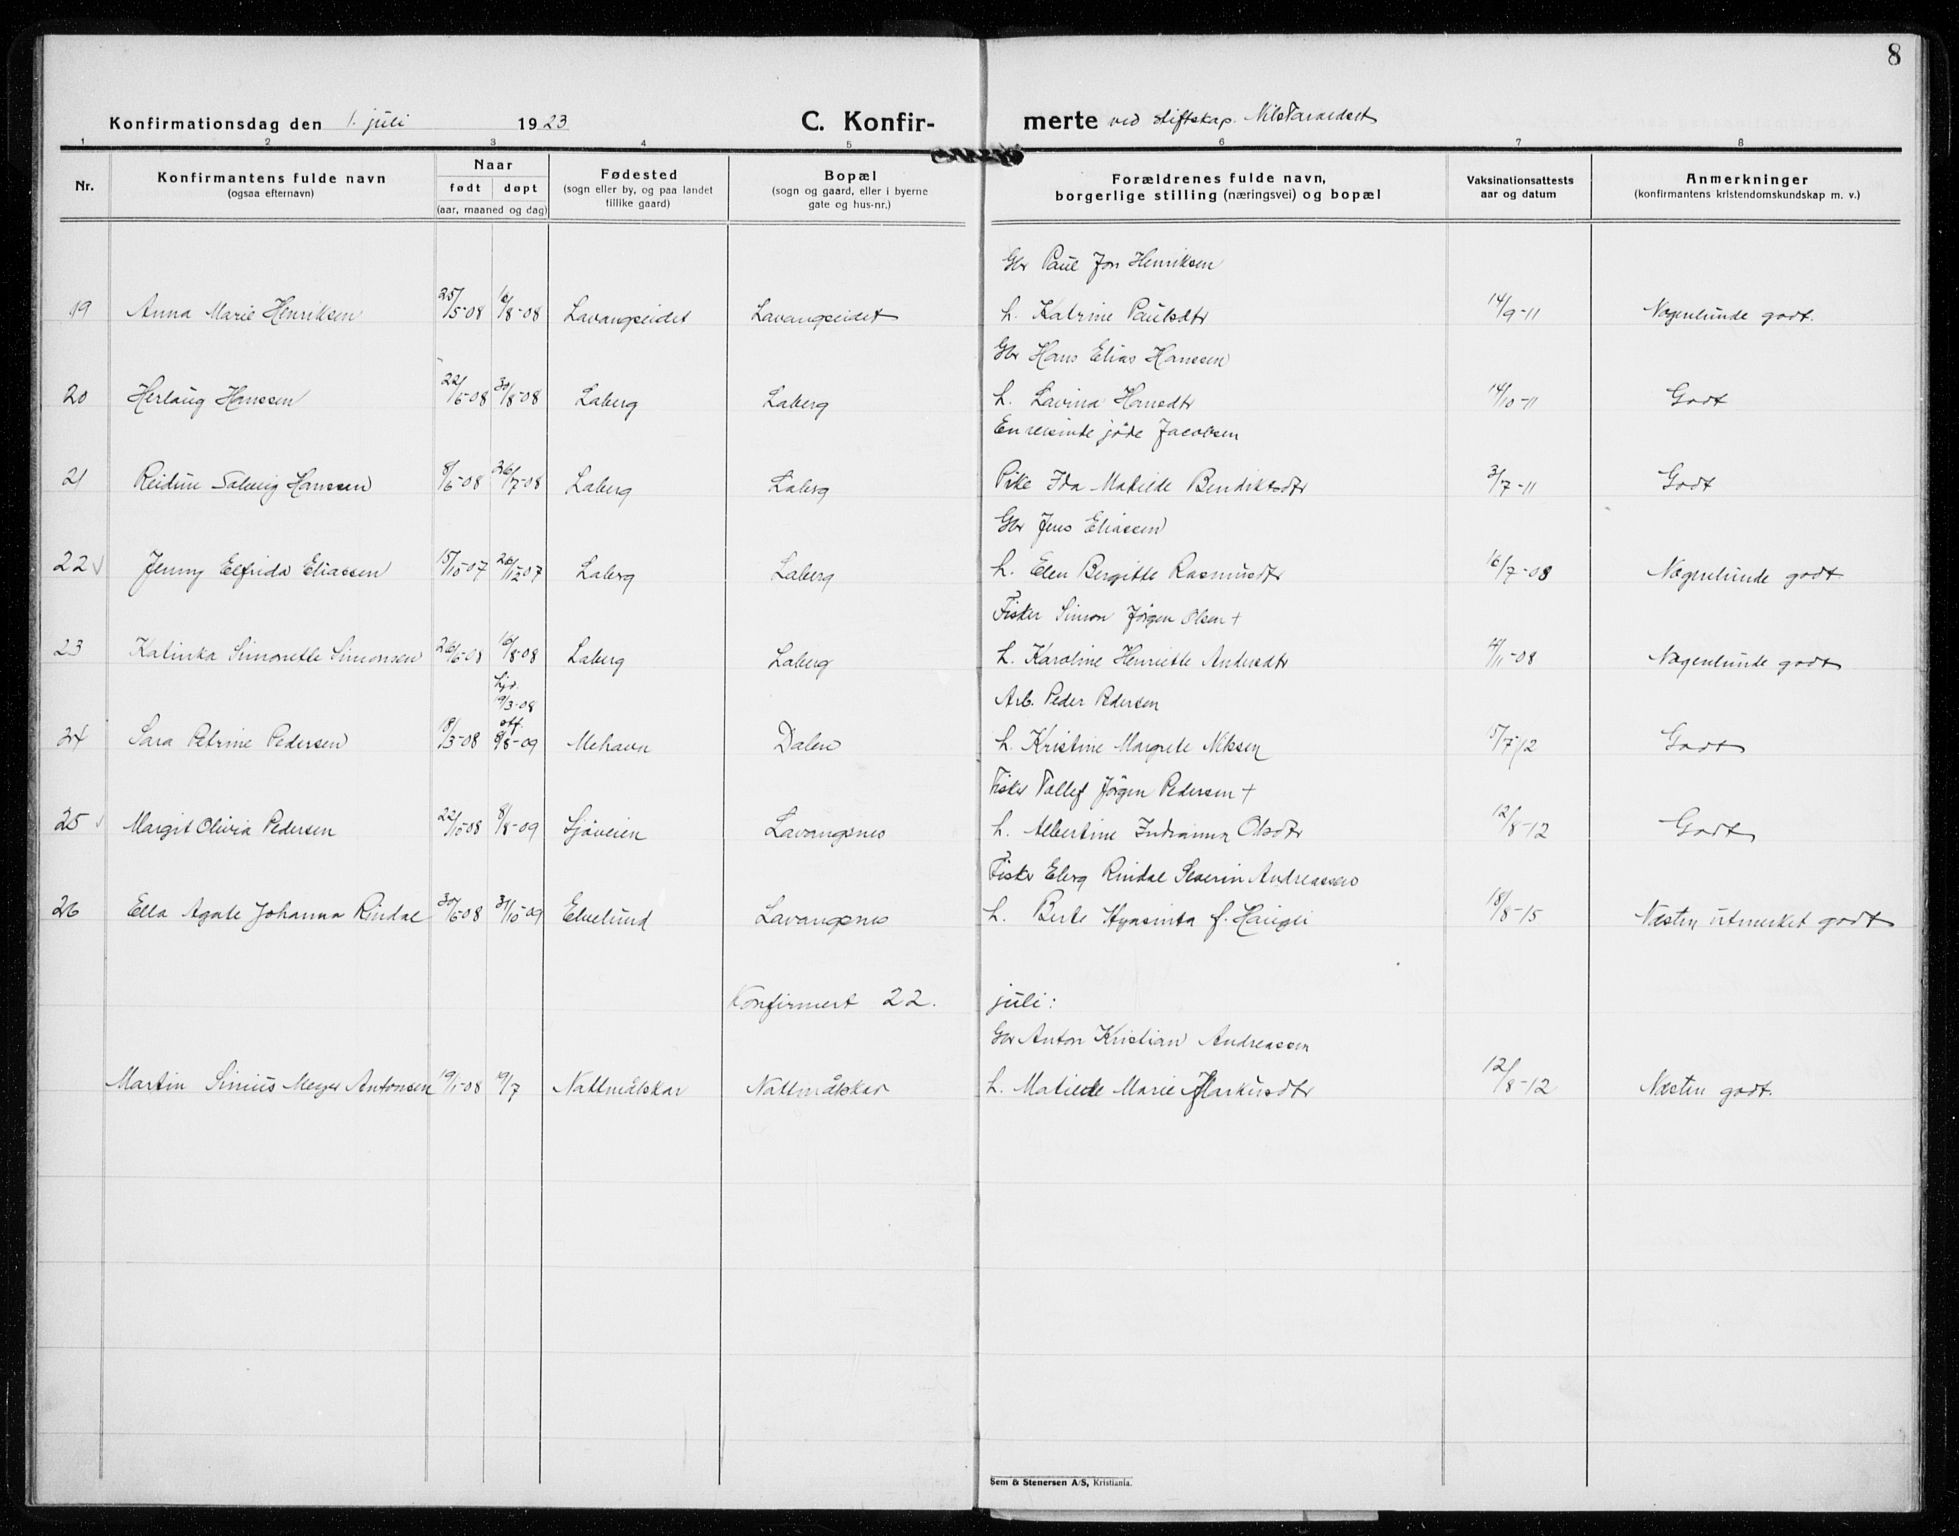 8
Konfirmationsdag den 1. juli 1923 C. Konfir- merte ved stiftskap.
1 2 3 4 5 6 7 8
Nr. Konfirmantens fulde navn (ogsaa efternavn) Naar født døpt (aar, maaned og dag) Fødested (sogn eller by, og paa landet tillike gaard) Bopæl (sogn og gaard, eller i byerne gate og hus-nr.) Forældrenes fulde navn, borgerlige stilling (næringsvei) og bopæl Vaksinationsattests aar og datum Anmerkninger (konfirmantens kristendomskundskap m. v.)
Gbr Paul Jon Henriksen
19 Anna Marie Henriksen 25/5-08 16/8-08 Lavangseidet Lavangseidet h. Katrine Paulsdtr 14/9-11 Nogenlunde godt.
Gbr Hans Elias Hanssen
20 Herlaug Hanssen 22/6-08 30/8-08 Laberg Laberg h. Lavina Hansdtr 14/10-11 Godt
En reisende jøde Jacobsen
21 Reidun Solveig Hanssen 8/6-08 26/7-08 Laberg Laberg Pike Ida Matilde Bendiktsdtr 3/7-11 Godt
Gbr Jens Eliassen
22 Jenny Elfrida Eliassen 15/10-07 26/12-07 Laberg Laberg h. Elen Bergitte Rasmusdtr 16/7-08 Nogenlunde godt
Fisker Simon Jörgen Olsen +
23 Katinka Simonette Simonsen 26/6-08 16/8-08 Laberg Laberg h. Karoline Henriette Andersdtr 4/11-08 Nogenlunde godt
Hjd. 19/3-08 Arb. Peder Pedersen
24 Sara Petrine Pedersen 18/3-08 off. 8/8-09 Mehavn Dalen h. Kristine Margrete Nilssen 15/7-12 Godt
Fisker Tollef Jörgen Pedersen +
25 Margit Olivia Pedersen 22/10-08 8/8-09 Sjöveien Lavangsnes h. Albertine Indianna Olsdtr 12/8-12 Godt
Fisker Eberg Rindal Severin Andreassen
26 Ella Agate Johanna Rindal 30/6-08 31/10-09 Elvelund Lavangsnes h. Berte Hyasinta f. Haugli 18/8-15 Næsten utmerket godt
Konfirmert 22. juli:
Gbr Anton Kristian Andreassen
Martin Sinius Meyer Antonsen 19/1-08 19/7 Nattmålskar Nattmålskar h. Matilde Marie Markusdtr 12/8-12 Næsten godt.
Sem & Stenersen A/S, Kristiania.